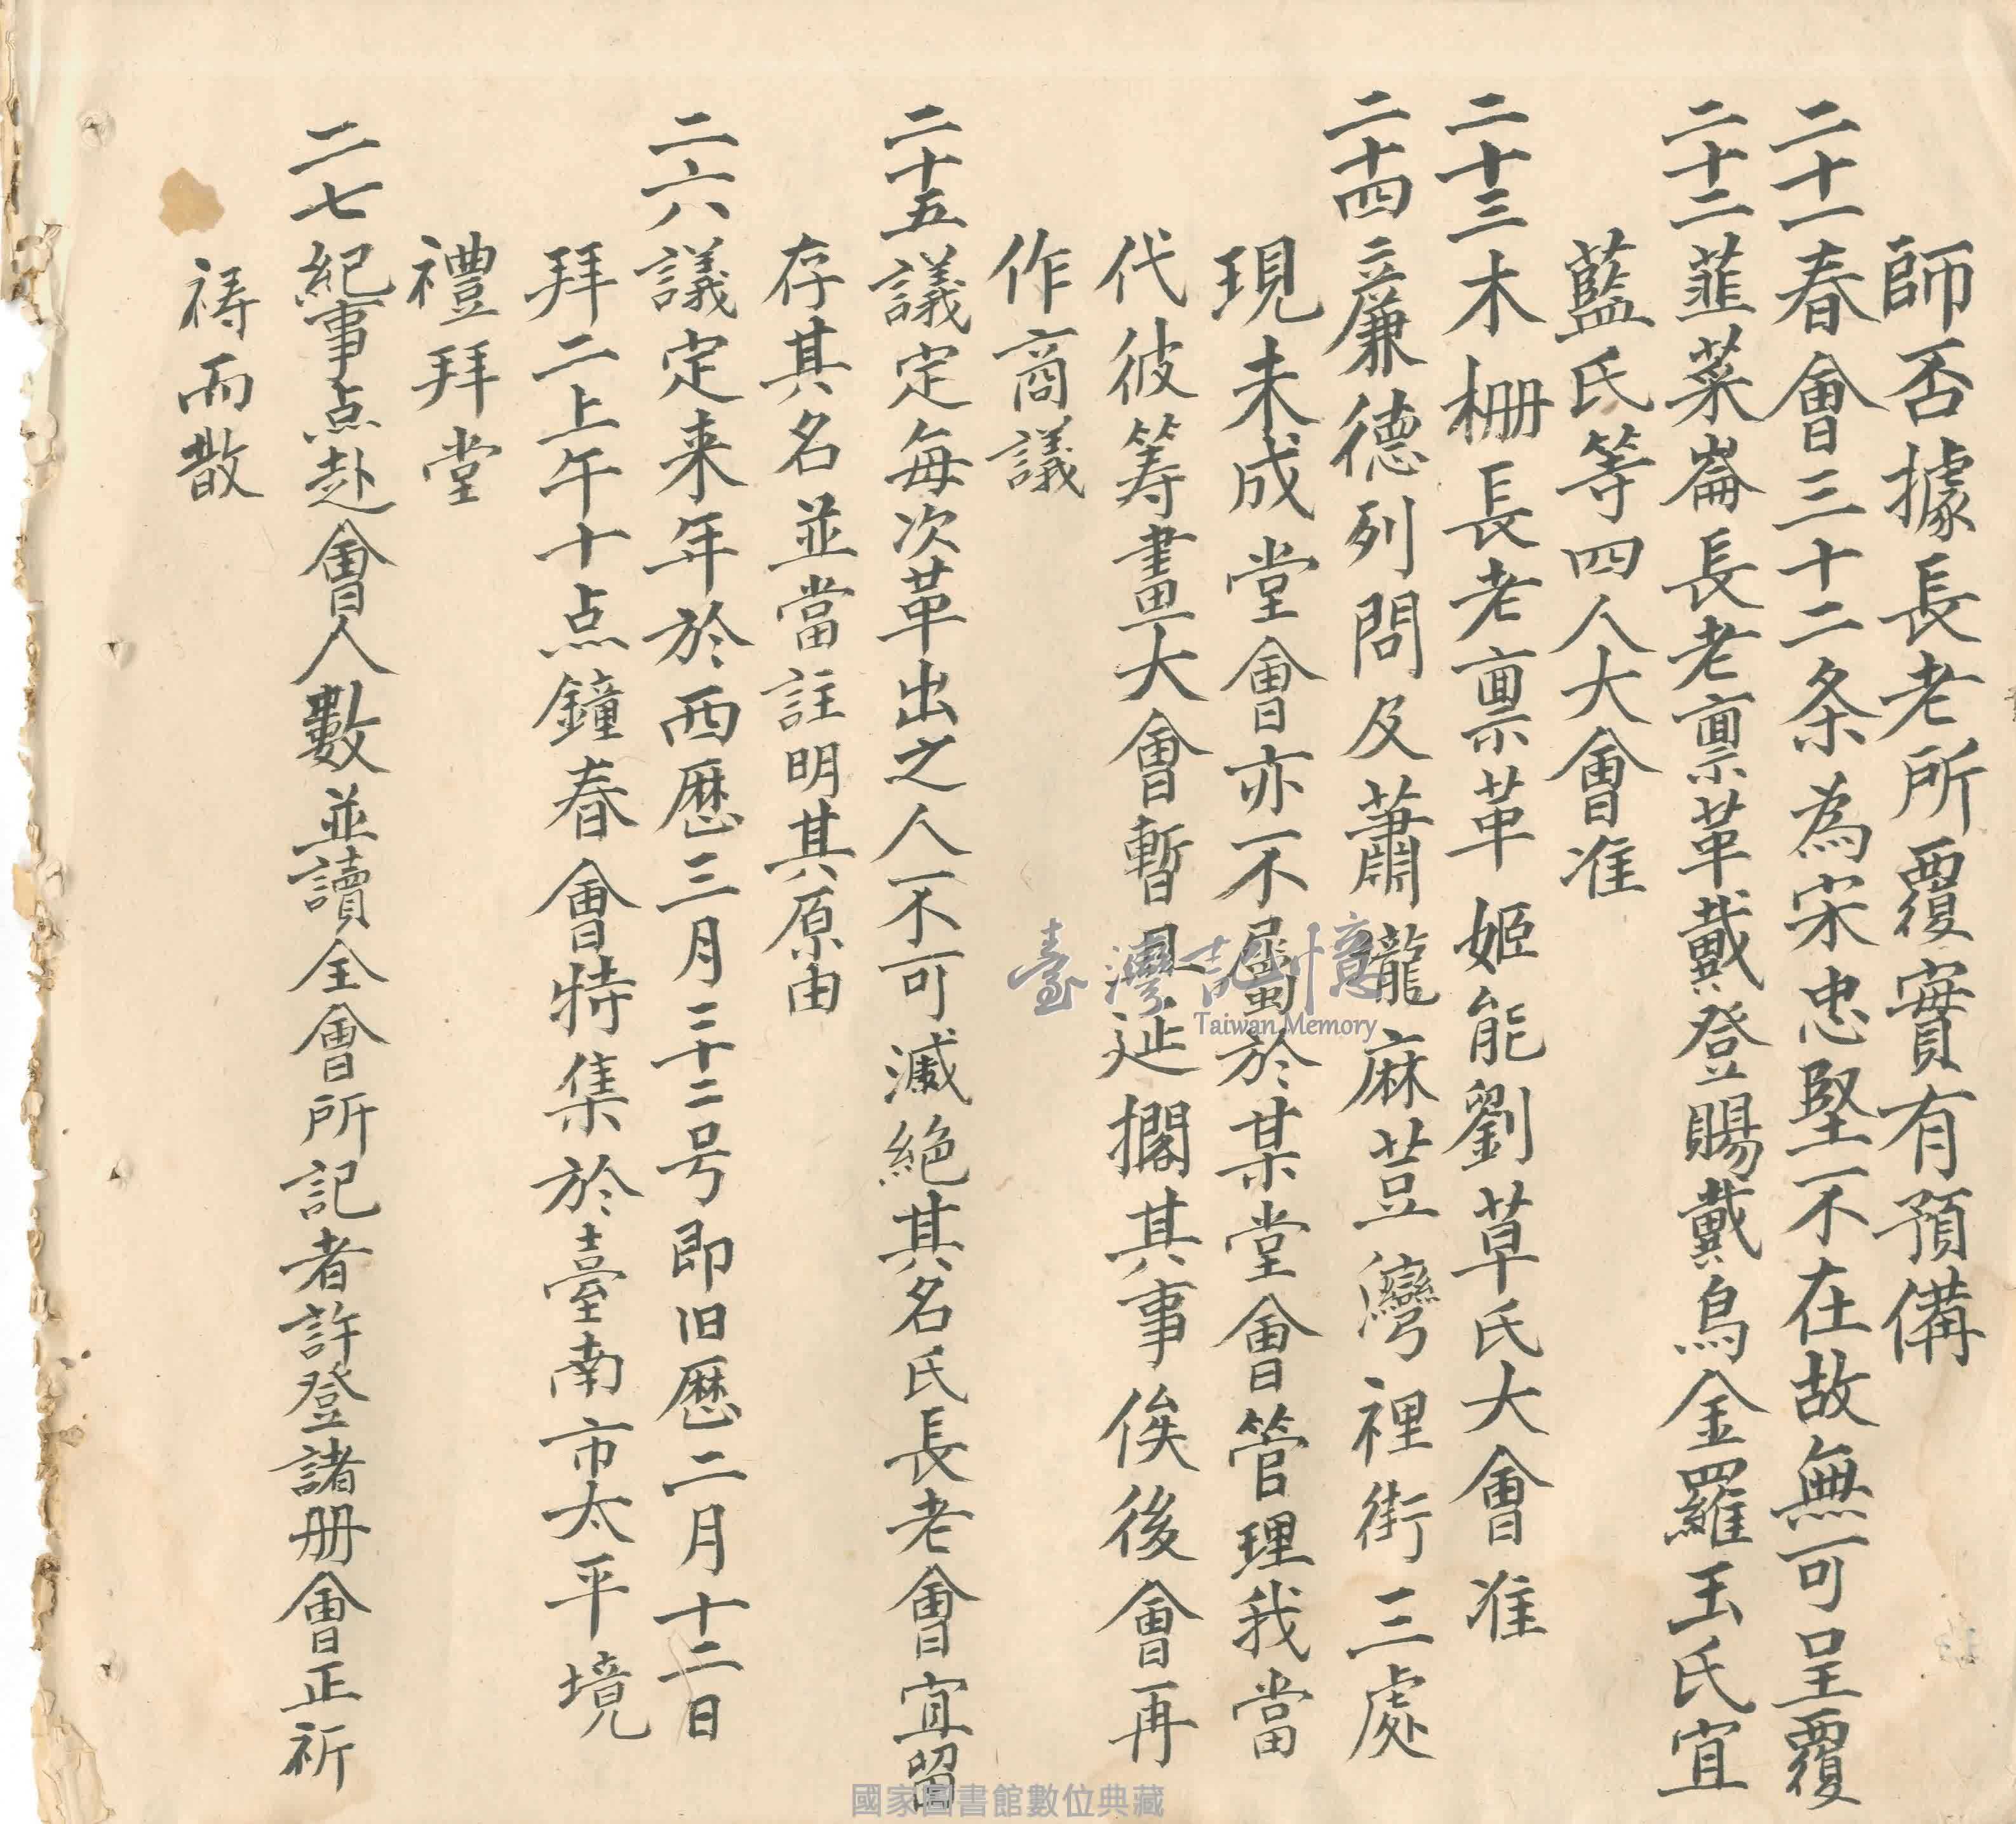 師否據長老所覆實有預備
二十一春會三十二条為宋忠堅不在故無可呈覆
二十二韮菜崙長老稟革戴登賜戴鳥金羅玉氏宜
藍氏等四人大會准
二十三木柵長老稟革姬能劉草氏大會准
二十四立廉德列問及蕭壠麻荳灣裡街三處
現未成堂會亦不屬於某堂會管理我當
代彼筹畫大會暫且延擱其事俟後會再
作商議
二十五議定每次革出之人不可滅絕其名氏長老會宜留
存其名並當註明其原由
二六議定来年於西歷三月三十二号即旧歷二月十二日
拜二上午十点鐘春會特集於臺南市太平境
禮拜堂
二七紀事点赴會人數並讀全會所記者許登諸册會正祈
禱而散
臺灣記憶
Taiwan Memory
國家圖書館數位典藏